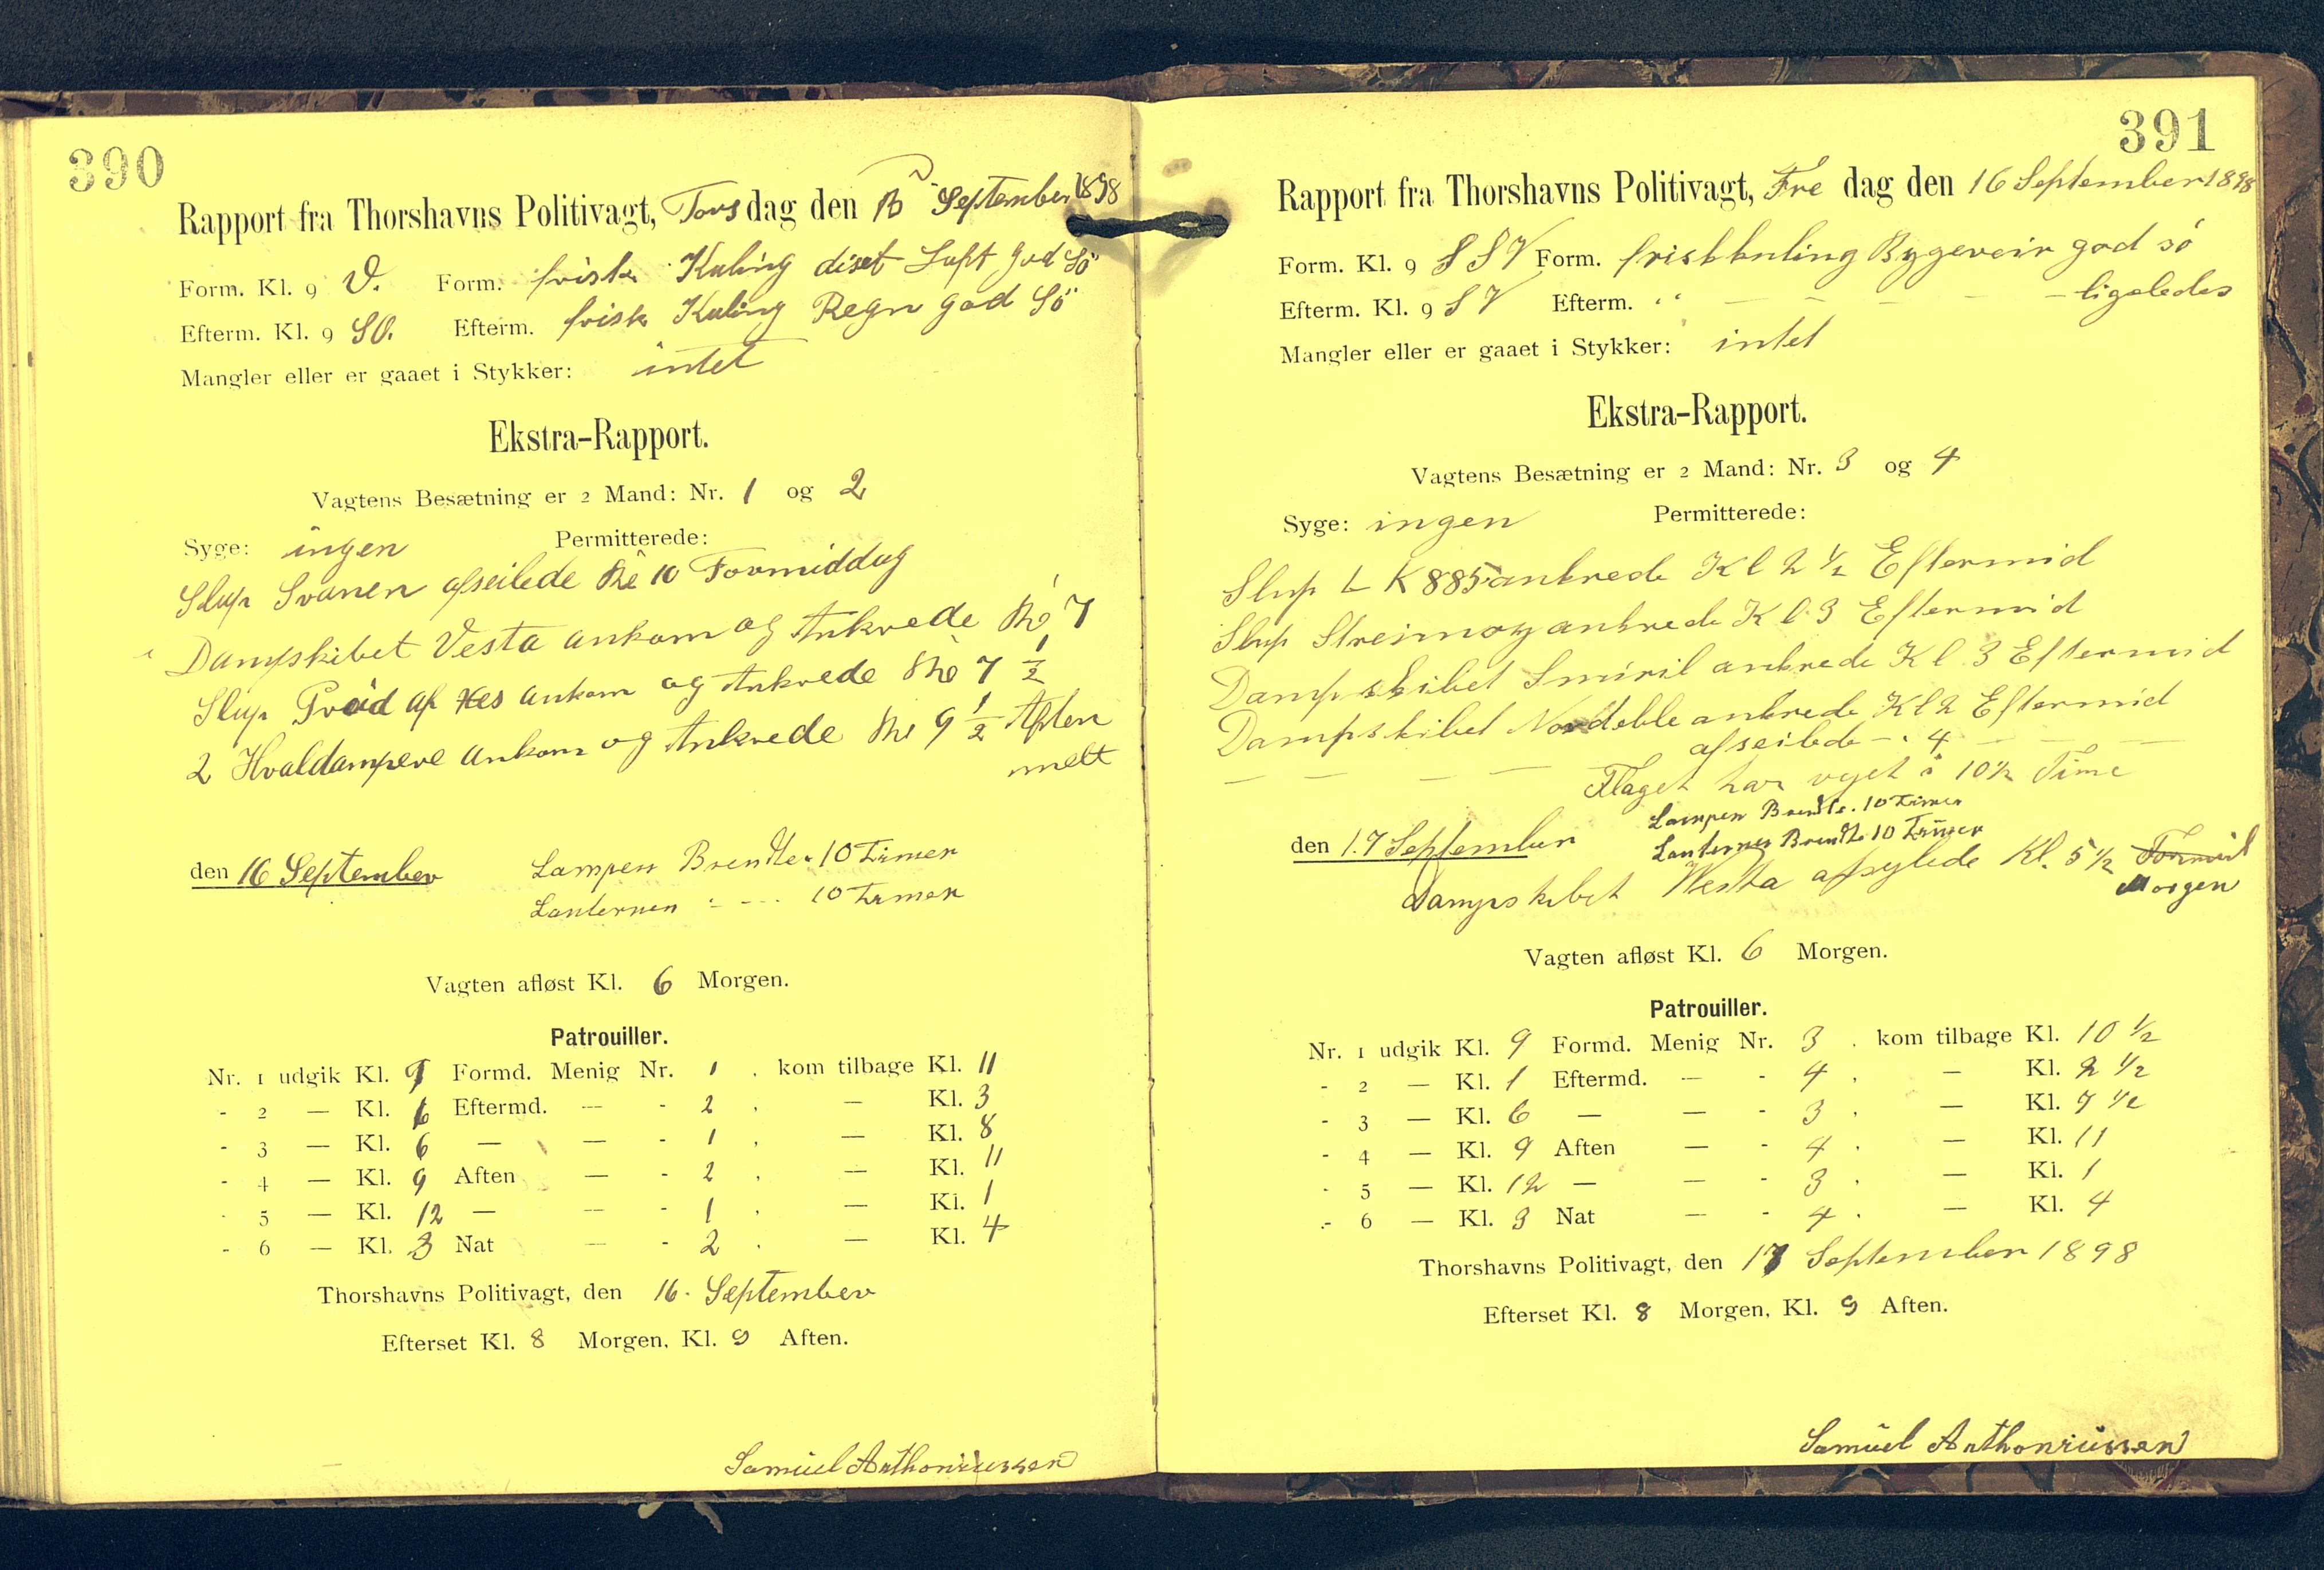 390
Rapport fra Thorshavns Politivagt, Torsdag den 15 September 1898
Form. Kl. 9 V. Form. frisk Kuling diset Luft god Sö
Efterm. Kl. 9 SO. Efterm. frisk Kuling Regn god Sö
Mangler eller er gaaet i Stykker: intet
Ekstra-Rapport.
Vagtens Besætning er 2 Mand: Nr. 1 og 2
Syge: ingen Permitterede:
Slup Svanen afseilede Kl 10 Formiddag
Dampskibet Vesta ankom og Ankrede Kl 7
Slup af Nes ankom og Ankrede Kl 7 1/2
2 Hvaldampere ankom og Ankrede Kl 9 1/2 Aften
melt
den 16 September Lampen Brendte 10 Timer
Lanternen - - - 10 Timer
Vagten afløst Kl. 6 Morgen.
Patrouiller.
Nr. 1 udgik Kl. 9 Formd. Menig Nr. 1 . kom tilbage Kl. 11
- 2 — Kl. 1 Eftermd. — - 2 . — Kl. 3
- 3 — Kl. 6 — — - 1 . — Kl. 8
- 4 — Kl. 9 Aften — - 2 . — Kl. 11
- 5 — Kl. 12 — — - 1 . — Kl. 1
- 6 — Kl. 3 Nat — - 2 . — Kl. 4
Thorshavns Politivagt, den 16. September
Efterset Kl. 8 Morgen, Kl. 9 Aften.
Samuel Anthoniussen
391
Rapport fra Thorshavns Politivagt, Fre dag den 16 September 1898
Form. Kl. 9 SSV Form. frisk kuling Bygeveir god sö
Efterm. Kl. 9 SV Efterm. " — — — — — ligeledes
Mangler eller er gaaet i Stykker: intet
Ekstra-Rapport.
Vagtens Besætning er 2 Mand: Nr. 3 og 4
Syge: ingen Permitterede:
Slup L K 885 ankrede Kl 2 1/2 Eftermid
Slup Streimoy ankrede Kl 3 Eftermid
Dampskibet Smiril ankrede Kl 3 Eftermid
Dampskibet ankrede Kl 2 Eftermid
— — — — — afseilede — " 4 — — —
Flaget har veget i 10 1/2 Time
Lampen Brendte 10 Timer
den 17 September Lanternen Brendte 10 Timer
Dampskibet Westa afsylede Kl. 5 1/2 Formid
Morgen
Vagten afløst Kl. 6 Morgen.
Patrouiller.
Nr. 1 udgik Kl. 9 Formd. Menig Nr. 3 . kom tilbage Kl. 10 1/2
- 2 — Kl. 1 Eftermd. — - 4 . — Kl. 2 1/2
- 3 — Kl. 6 — — - 3 . — Kl. 7 1/2
- 4 — Kl. 9 Aften — - 4 . — Kl. 11
- 5 — Kl. 12 — — - 3 . — Kl. 1
- 6 — Kl. 3 Nat — - 4 . — Kl. 4
Thorshavns Politivagt, den 17 September 1898
Efterset Kl. 8 Morgen, Kl. 9 Aften.
Samuel Anthoniussen